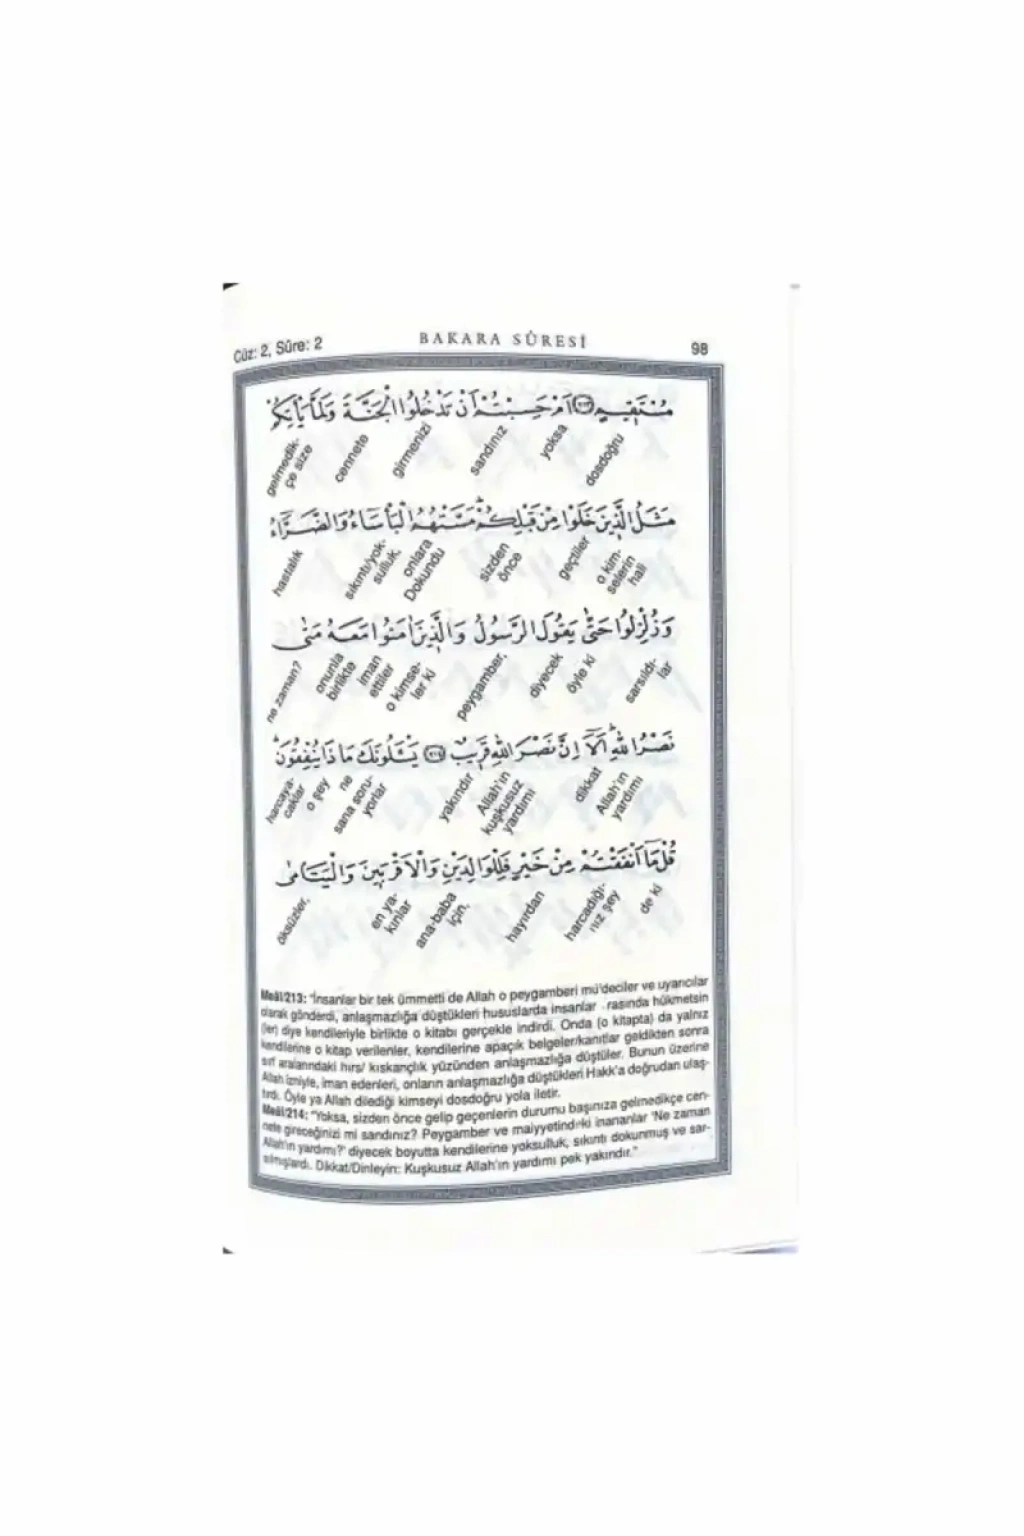 Cüz: 2, Sûre: 2 BAKARA SÛRESİ 98
مُسْتَقِيمٍ ﴿٢١٣﴾ اَمْ حَسِبْتُمْ اَنْ تَدْخُلُوا الْجَنَّةَ وَلَمَّا يَأْتِكُمْ
dosdoğru yoksa sandınız girmenizi cennete gelmedik-
çe size
مَثَلُ الَّذِينَ خَلَوْا مِنْ قَبْلِكُمْ مَسَّتْهُمُ الْبَأْسَاءُ وَالضَّرَّاءُ
o kim-
selerin
hali geçtiler sizden
önce onlara
Dokundu sıkıntı/yok-
sulluk, hastalık
وَزُلْزِلُوا حَتّٰى يَقُولَ الرَّسُولُ وَالَّذِينَ اٰمَنُوا مَعَهُ مَتٰى
sarsıldı-
lar öyle ki diyecek peygamber, o kimse-
ler ki iman
ettiler onunla
birlikte ne zaman?
نَصْرُ اللّٰهِ اَلَٓا اِنَّ نَصْرَ اللّٰهِ قَرِيبٌ ﴿٢١٤﴾ يَسْـَٔلُونَكَ مَاذَا يُنْفِقُونَ
Allah'ın
yardımı dikkat Allah'ın
kuşkusuz
yardımı yakındır sana soru-
yorlar ne o şey harcaya-
caklar
قُلْ مَٓا اَنْفَقْتُمْ مِنْ خَيْرٍ فَلِلْوَالِدَيْنِ وَالْاَقْرَبِينَ وَالْيَتَامٰى
de ki harcadığı-
nız şey hayırdan ana-baba
için, en ya-
kınlar öksüzler,
Meâl/213: "İnsanlar bir tek ümmetti de Allah o peygamberi mü'deciler ve uyarıcılar
olarak gönderdi, anlaşmazlığa düştükleri hususlarda insanlar rasında hükmetsin
(ler) diye kendileriyle birlikte o kitabı gerçekle indirdi. Onda (o kitapta) da yalnız
kendilerine o kitap verilenler, kendilerine apaçık belgeler/kanıtlar geldikten sonra
sırf aralarındaki hırs/ kıskançlık yüzünden anlaşmazlığa düştüler. Bunun üzerine
Allah izniyle, iman edenleri, onların anlaşmazlığa düştükleri Hakk'a doğrudan ulaş-
tırdı. Öyle ya Allah dilediği kimseyi dosdoğru yola iletir.
Meâl/214: "Yoksa, sizden önce gelip geçenlerin durumu başınıza gelmedikçe cen-
nete gireceğinizi mi sandınız? Peygamber ve maiyyetindeki inananlar 'Ne zaman
Allah'ın yardımı?' diyecek boyutta kendilerine yoksulluk, sıkıntı dokunmuş ve sar-
sılmışlardı. Dikkat/Dinleyin: Kuşkusuz Allah'ın yardımı pek yakındır."